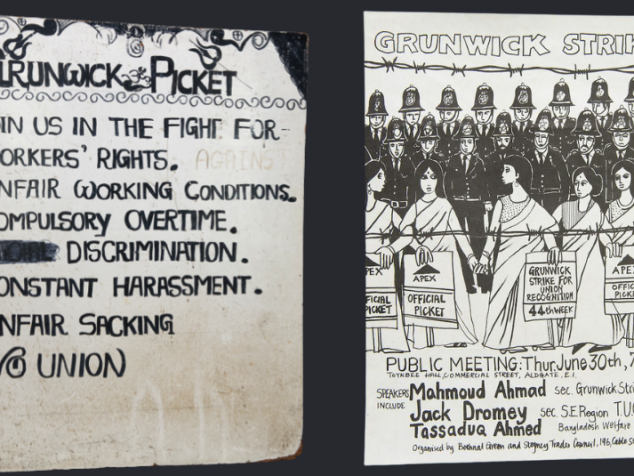 GRUNWICK PICKET
IN US IN THE FIGHT FOR-
ORKERS' RIGHTS. AGAINST
NFAIR WORKING CONDITIONS.
OMPULSORY OVERTIME.
DISCRIMINATION.
ONSTANT HARASSMENT.
NFAIR SACKING
UNION
GRUNWICK STRIK
APEX
OFFICIAL
PICKET
GRUNWICK
STRIKE FOR
UNION
RECOGNITION
44th WEEK
PEX
FICIAL
PICKET
APE
OFFIC
PICK
PUBLIC MEETING: Thur. June 30th, 7
TOYNBEE HALL, COMMERCIAL STREET, ALDGATE, E.1.
SPEAKERS INCLUDE
Mahmoud Ahmad sec. Grunwick Str
Jack Dromey sec. S.E. Region T.U.C
Tassaduq Ahmed Bangladesh Welfare
Organised by Bethnal Green and Stepney Trades Council, 196, Cable S